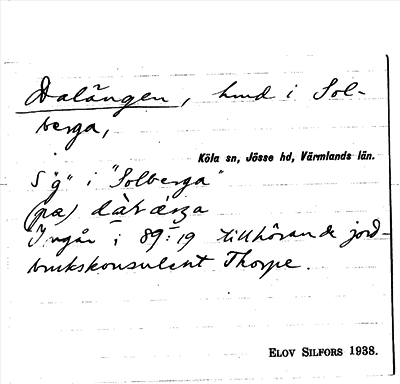 Dalängen, hmd i Sol-
berga,
Köla sn, Jösse hd, Värmlands län.
i "Solberga"
(pa)
Ingår i 89:19 tillhörande jord-
brukskonsulent Thorpe.
ELOV SILFORS 1938.